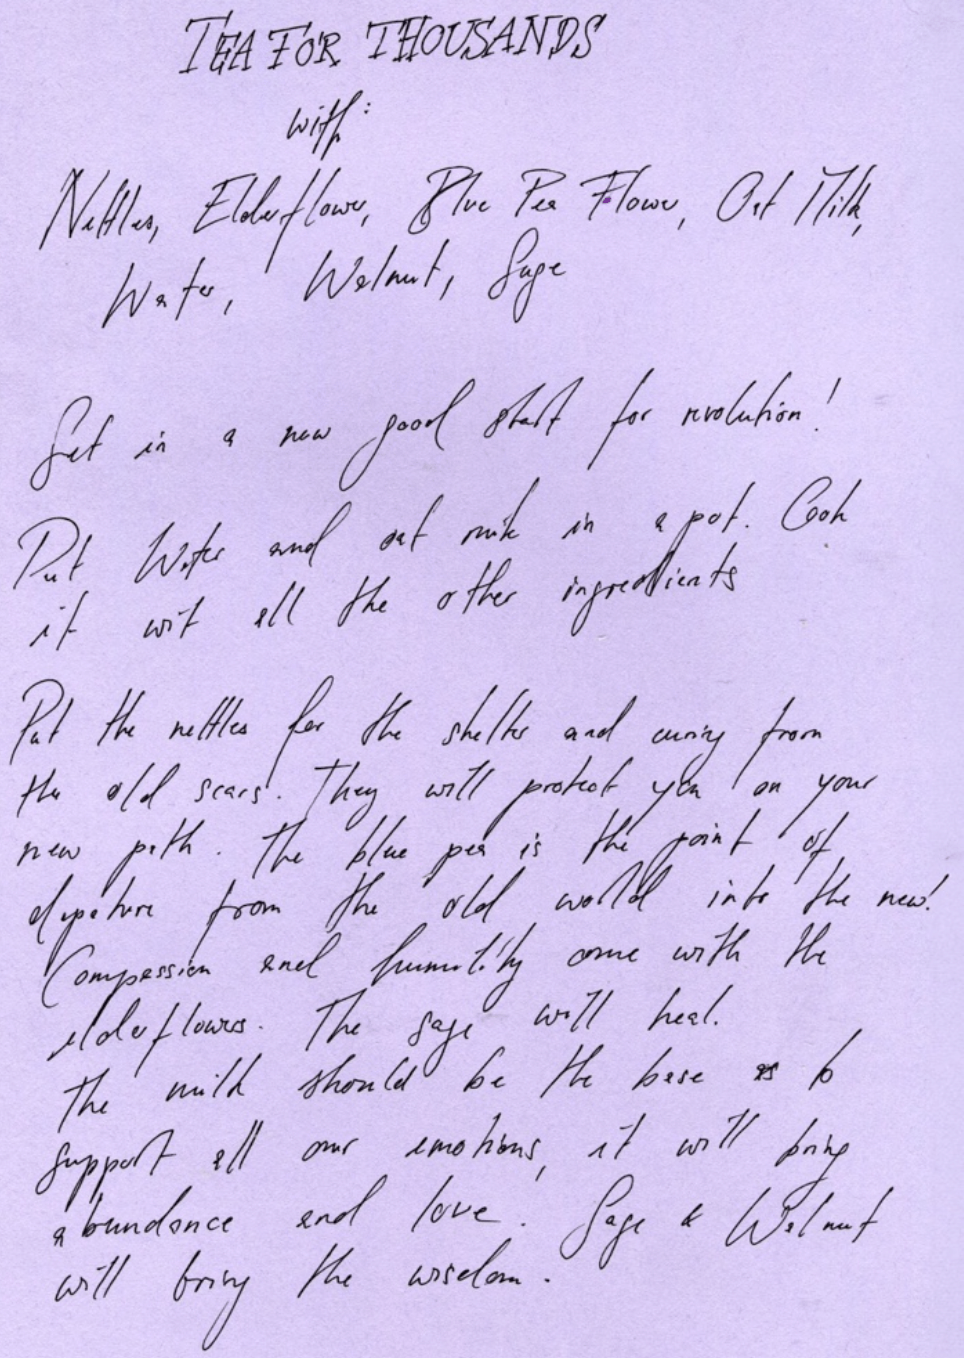 TEA FOR THOUSANDS
with:
Nettles, Elderflower, Blue Pea Flower, Oat Milk,
Water, Walnut, Sage
Get in a new good start for revolution!
Put Water and oat milk in a pot. Cook
it wit all the other ingredients
Put the nettles for the shelter and curing from
the old scars. They will protect you on your
new path. The blue pea is the point of
depature from the old world into the new!
Compassion and humility come with the
elderflowers. The sage will heal.
The milk should be the base as to
support all our emotions, it will bring
abundance and love. Sage & Walnut
will bring the wisdom.